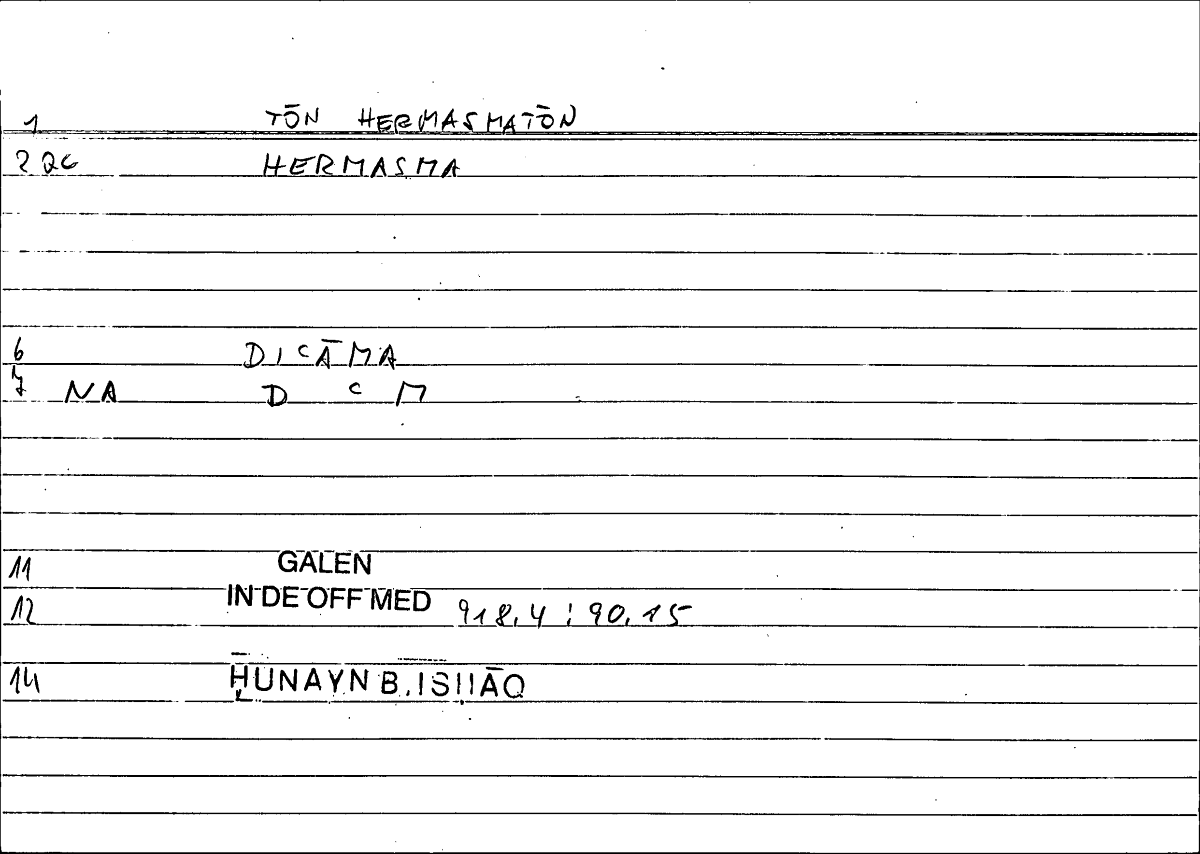 1 TŌN HERMASMATŌN
2 QG HERMASMA
6 DIʿĀMA
7 NA D ʿ M
11 GALEN
12 IN DE OFF MED 918,4 : 90,15
14 ḤUNAYN B. ISḤĀQ